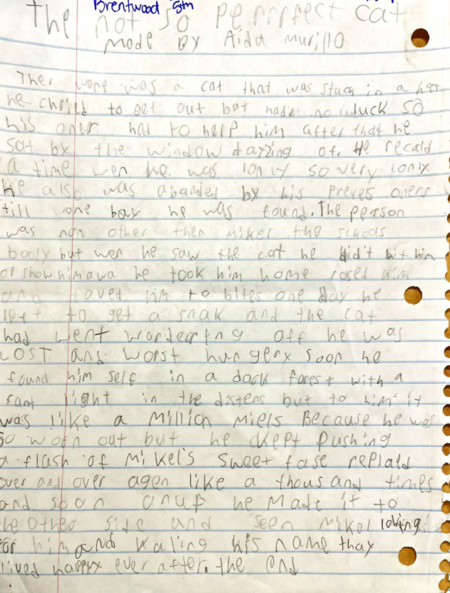 Brentwood 5th
The not so perrrfect cat
Made By Aida Murillo
Ther wone was a cat that was stuck in a
he chrild to get out but hade no luck so
his oner had to help him after that he
sat by the window dayying of. He recald
a time wen he was lonly so very lonly
he also was abanded by his preves oners
till wone bay he was found. The person
was non other then mikel the schools
booly but wen he saw the cat he didn't hit him
or show him awa he took him home rased him
and loved im to bites one day he
left to get a snak and the cat
had went worderring off he was
LOST and worst hungery soon he
found him self in a dark forest with a
fant light in the distens but to him it
was like a Million miels Because he was
so worn out but he kept pushing
a flash of Mikel's sweet fase replaid
over and over agen like a thousand times
and soon enuf he made it to
the other side and seen Mikel loking
for him and kaling his name thay
lived happy ever after. the end